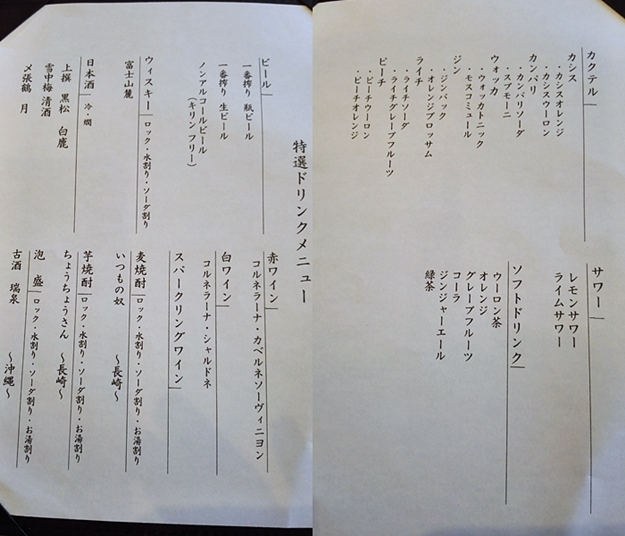 特選ドリンクメニュー
ビール
一番搾り 瓶ビール
一番搾り 生ビール
ノンアルコールビール
(キリン フリー)
ウィスキー ロック・水割り・ソーダ割り
富士山麓
日本酒 冷・燗
上撰 黒松 白鹿
雪中梅 清酒
〆張鶴 月
赤ワイン
コルネラーナ・カベルネソーヴィニヨン
白ワイン
コルネラーナ・シャルドネ
スパークリングワイン
麦焼酎 ロック・水割り・ソーダ割り・お湯割り
いつもの奴 〜長崎〜
芋焼酎 ロック・水割り・ソーダ割り・お湯割り
ちょうちょうさん 〜長崎〜
泡盛 ロック・水割り・ソーダ割り・お湯割り
古酒 瑞泉 〜沖縄〜
カクテル
カシス
・カシスオレンジ
・カシスウーロン
カンパリ
・カンパリソーダ
・スプモーニ
ウォッカ
・ウォッカトニック
・モスコミュール
ジン
・ジンバック
・オレンジブロッサム
ライチ
・ライチソーダ
・ライチグレープフルーツ
ピーチ
・ピーチウーロン
・ピーチオレンジ
サワー
レモンサワー
ライムサワー
ソフトドリンク
ウーロン茶
オレンジ
グレープフルーツ
コーラ
ジンジャーエール
緑茶